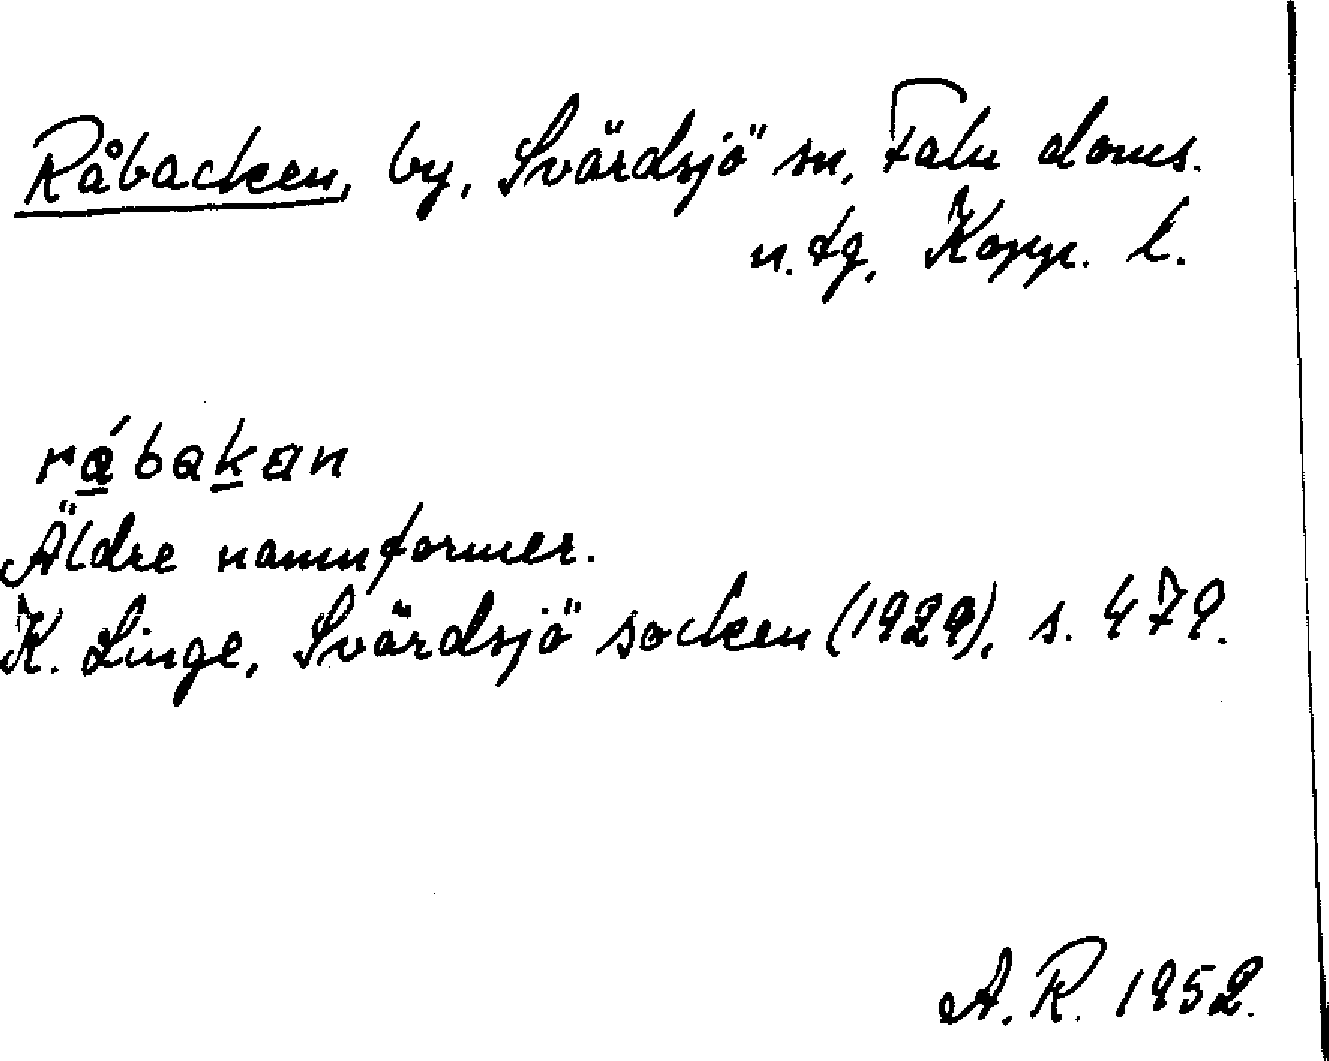 Råbacken, by, Svärdsjö sn, Falu doms.
n. tg, Kopp. l.
rábakan
Äldre namnformer.
K. Linge, Svärdsjö socken (1929), s. 479.
A. R. 1952.